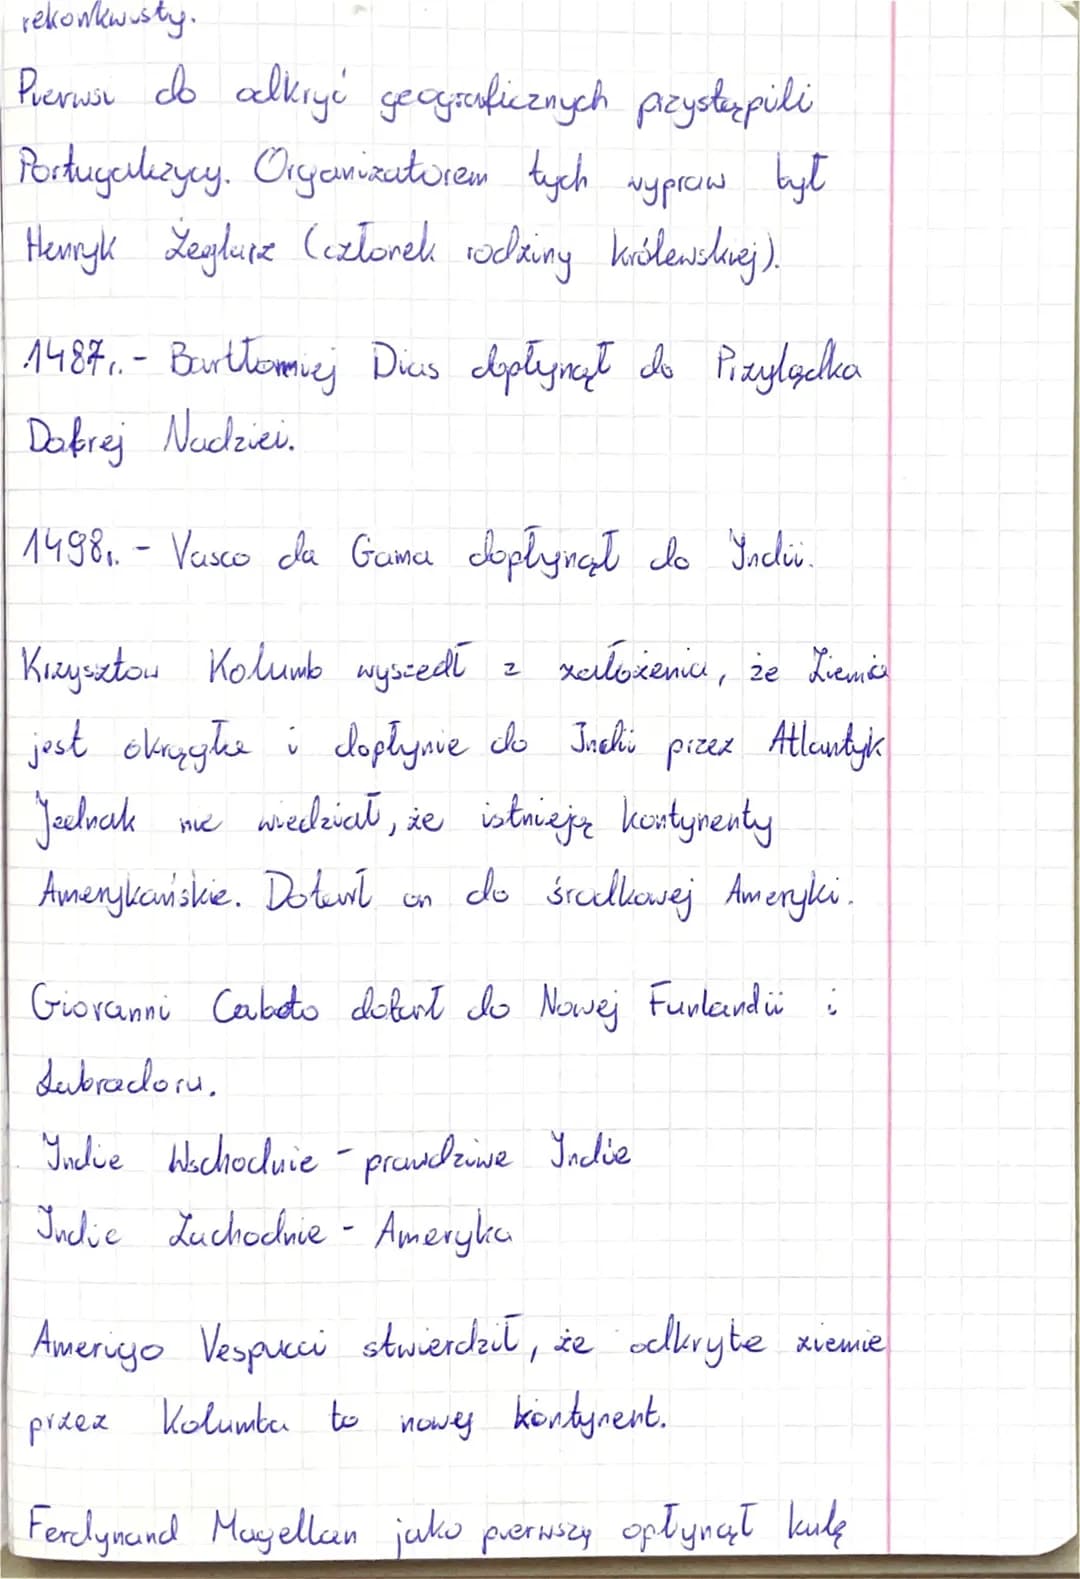 rekonkwisty.
Pierwsi do odkryć geograficznych przystąpili
Portugalczycy. Organizatorem tych wypraw był
Henryk Żeglarz (członek rodziny królewskiej).
1487r. - Bartłomiej Dias dopłynął do Przylądka
Dobrej Nadziei.
1498r. - Vasco da Gama dopłynął do Indii.
Krzysztow Kolumb wyszedł z założenia, że Ziemia
jest okrągła i dopłynie do Indii przez Atlantyk
Jednak nie wiedział, że istnieją kontynenty
Amerykańskie. Dotarł on do środkowej Ameryki.
Giovanni Caboto dotarł do Nowej Funlandii i
Labradoru.
Indie Wschodnie - prawdziwe Indie
Indie Zachodnie - Ameryka
Amerigo Vespucci stwierdził, że odkryte ziemie
przez Kolumba to nowy kontynent.
Ferdynand Magellan jako pierwszy opłynął kulę